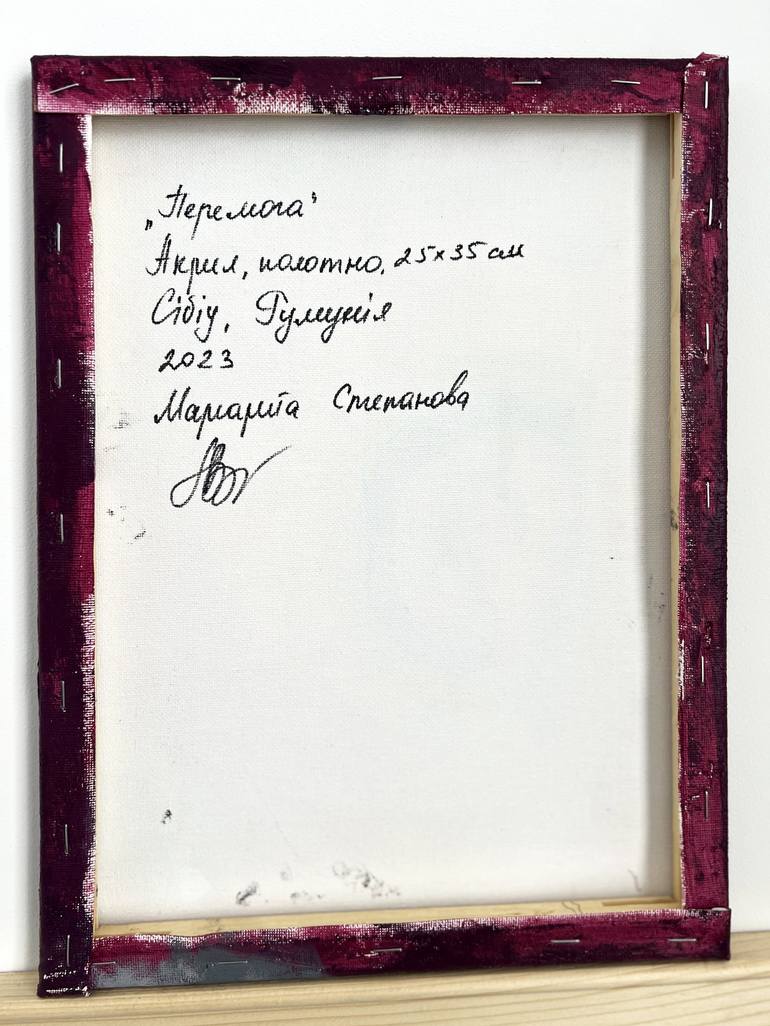 „Перемога“
Акрил, полотно, 25х35 см
Сібіу, Румунія
2023
Маргарита Степанова